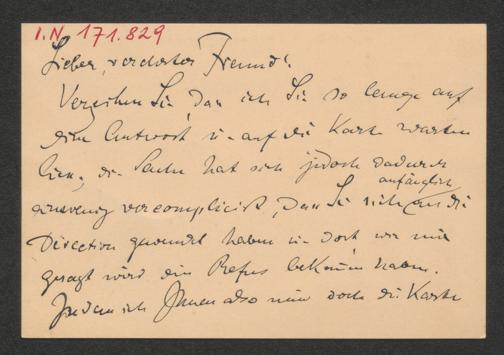 I.N 171.829
Lieber, verehrter Freund!
Verzeihen Sie, dass ich Sie so lange auf
die Antwort u. auf die Karte warten
liess, die Sache hat sich jedoch dadurch
anfänglich
ein wenig vercompliciert, dass Sie sich an die
Direction gewendet haben u. dort wie mir
gesagt wird ein Refus bekommen haben.
Indem ich Ihnen also nun doch die Karte